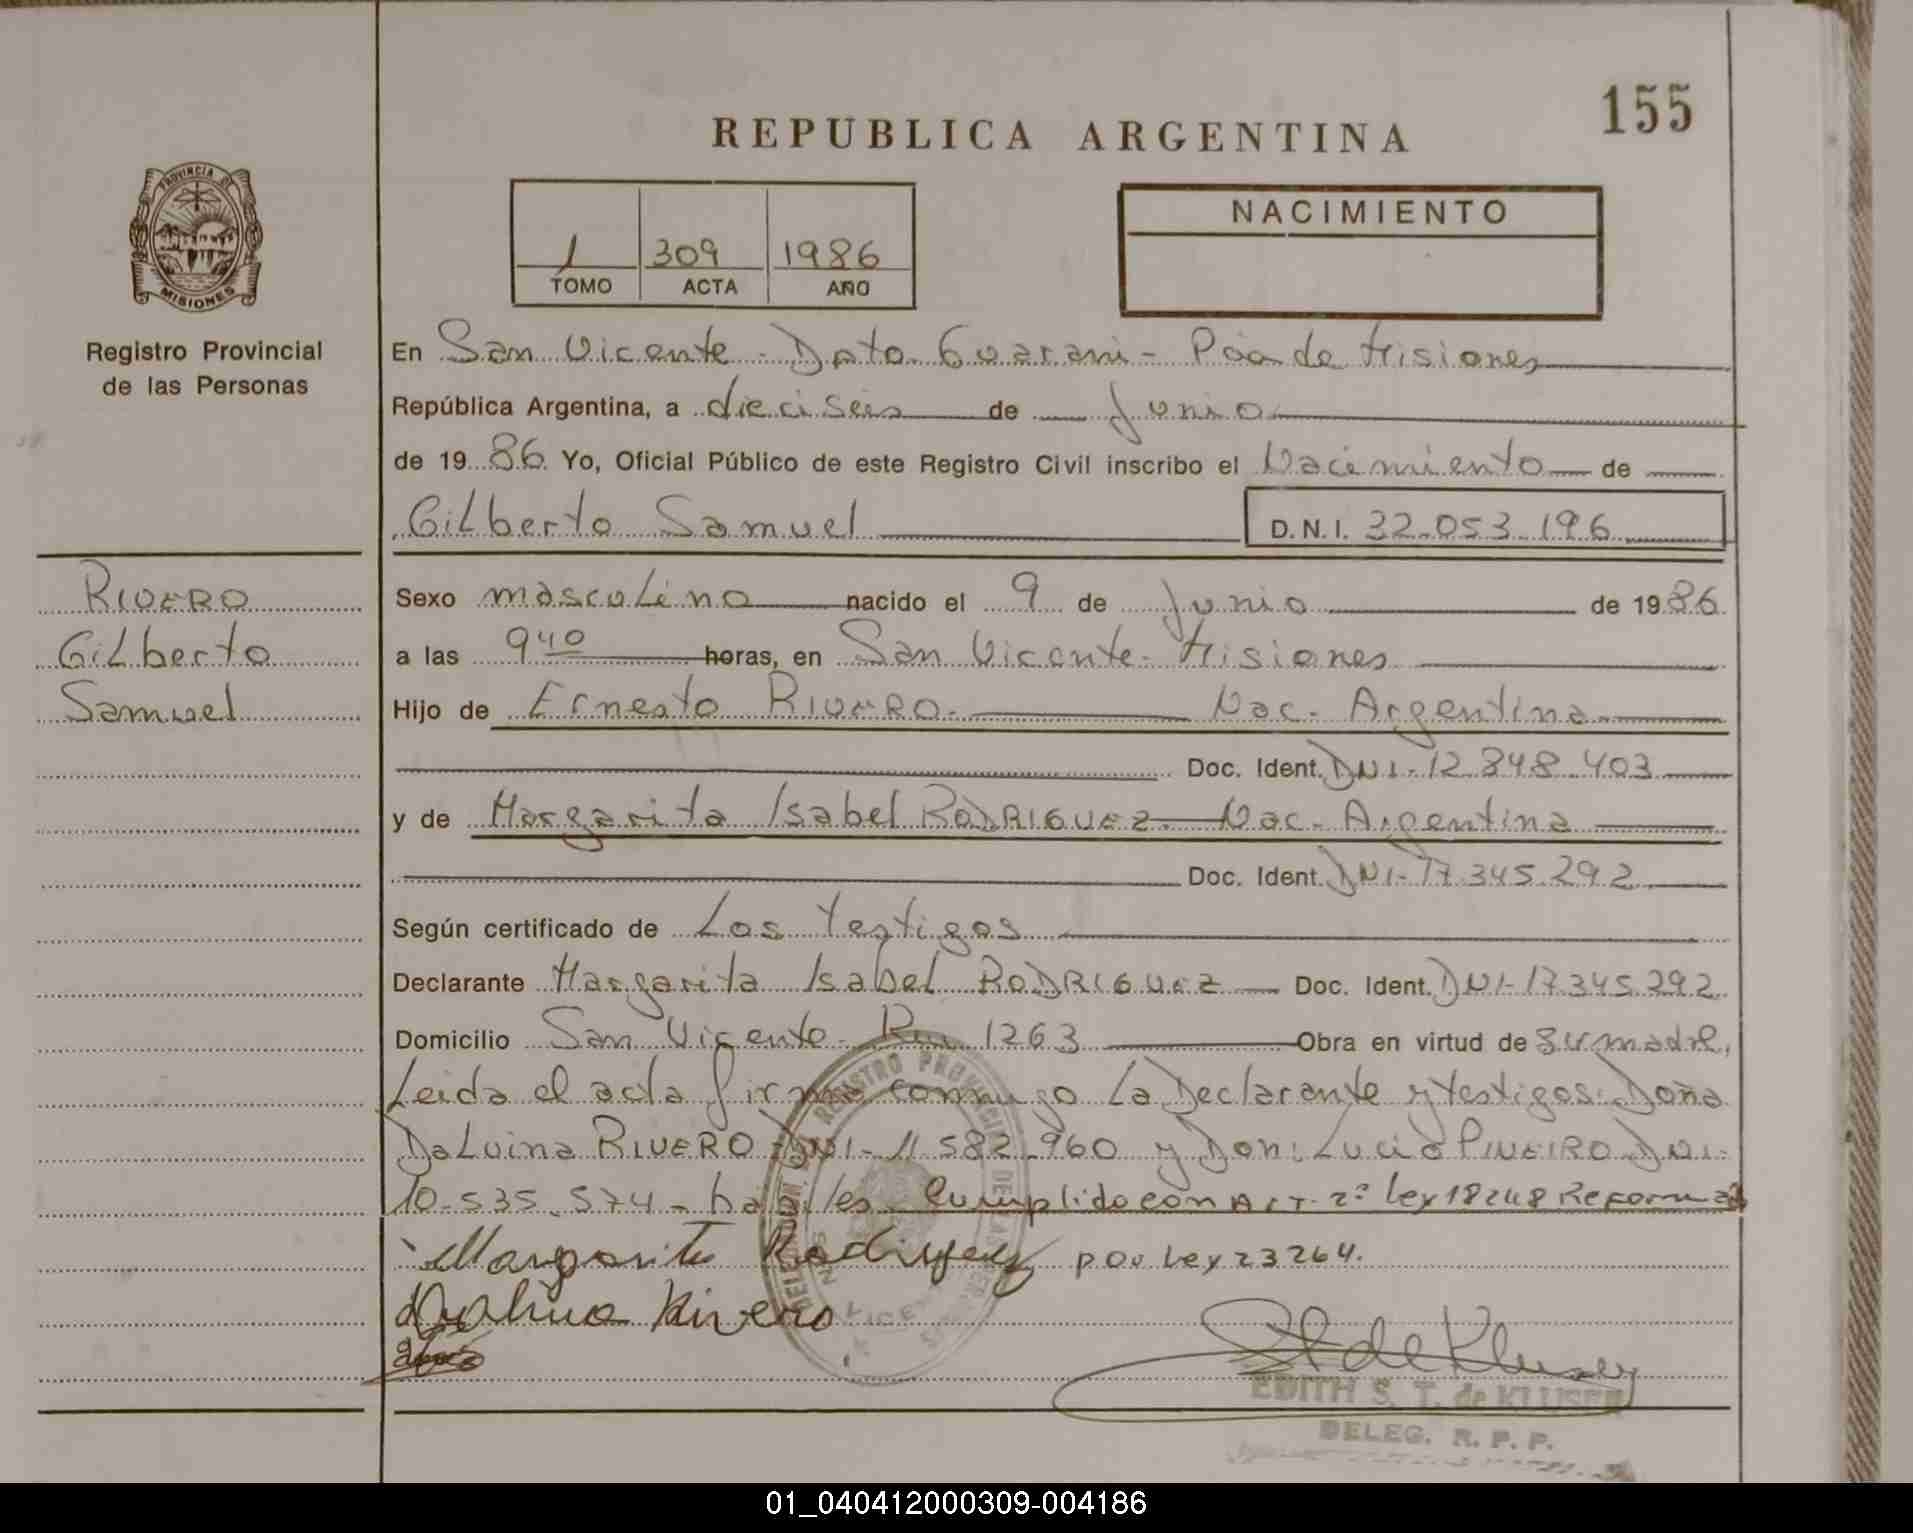 155
REPUBLICA ARGENTINA
PROVINCIA DE
MISIONES
Registro Provincial
de las Personas
1 309 1986
TOMO ACTA AÑO
NACIMIENTO
En San Vicente - Dpto. Guarani - Pcia de Misiones
República Argentina, a dieciseis de Junio
de 1986 Yo, Oficial Público de este Registro Civil inscribo el Nacimiento de
Gilberto Samuel D.N.I. 32.053.196
RIVERO
Gilberto
Samuel
Sexo masculino nacido el 9 de Junio de 1986
a las 9 40 horas, en San Vicente - Misiones
Hijo de Ernesto RIVERO. Nac. Argentina
Doc. Ident. DNI - 12.848.403
y de Margarita Isabel RODRIGUEZ. Nac. Argentina
Doc. Ident. DNI - 17.345.292
Según certificado de Los testigos
Declarante Margarita Isabel RODRIGUEZ Doc. Ident. DNI - 17.345.292
Domicilio San Vicente 1263 Obra en virtud de su madre.
Leida el acta firma conmigo La Declarante y testigos: Doña
DaLvina RIVERO DNI - 11.582.960 y Don: Lucio PIÑEIRO DNI -
10.535.574 - habiles. Cumplido con Art. 2º Ley 18248 Reformada
Margarita Rodriguez por Ley 23264.
Dalvina Rivero
EDITH S. T. de KLUSER
DELEG. R. P. P.
01_040412000309-004186